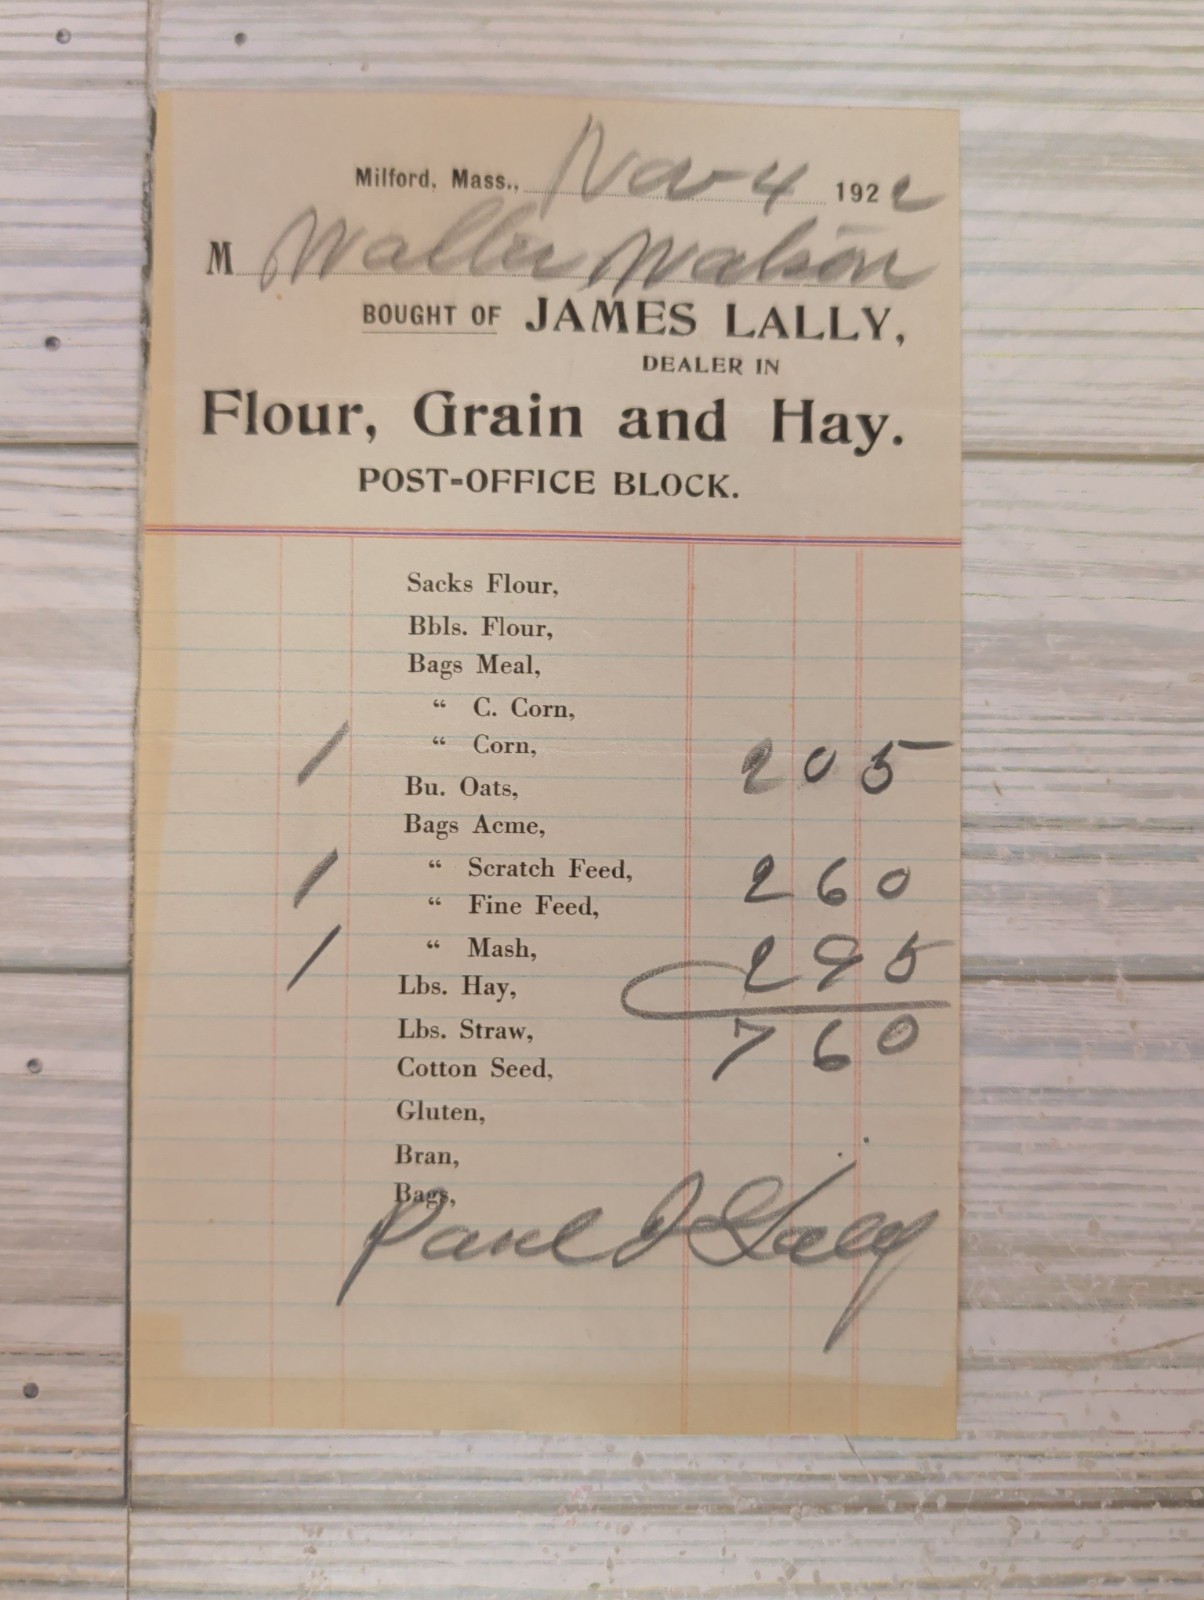 Milford, Mass., Nov 4 1922
M Walter Watson
BOUGHT OF JAMES LALLY,
DEALER IN
Flour, Grain and Hay.
POST-OFFICE BLOCK.
Sacks Flour,
Bbls. Flour,
Bags Meal,
“ C. Corn,
1 “ Corn, 2 05
Bu. Oats,
Bags Acme,
1 “ Scratch Feed, 2 60
“ Fine Feed,
1 “ Mash, 2 95
Lbs. Hay,
Lbs. Straw, 7 60
Cotton Seed,
Gluten,
Bran,
Bags,
Paul J Lally